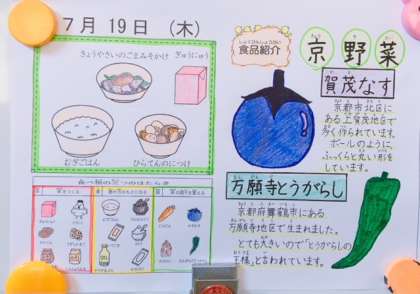 7月19日(木)
きょうやさいのごまみそかけ
ぎゅうにゅう
むぎごはん
ひらてんのにつけ
食品紹介
京野菜
賀茂なす
京都市北区に
ある上賀茂地区で
多く作られています。
ボールのように
ふっくらと丸い形を
しています。
万願寺とうがらし
京都府舞鶴市にある
万願寺地区で生まれました。
とても大きいので「とうがらしの
王様」と言われています。